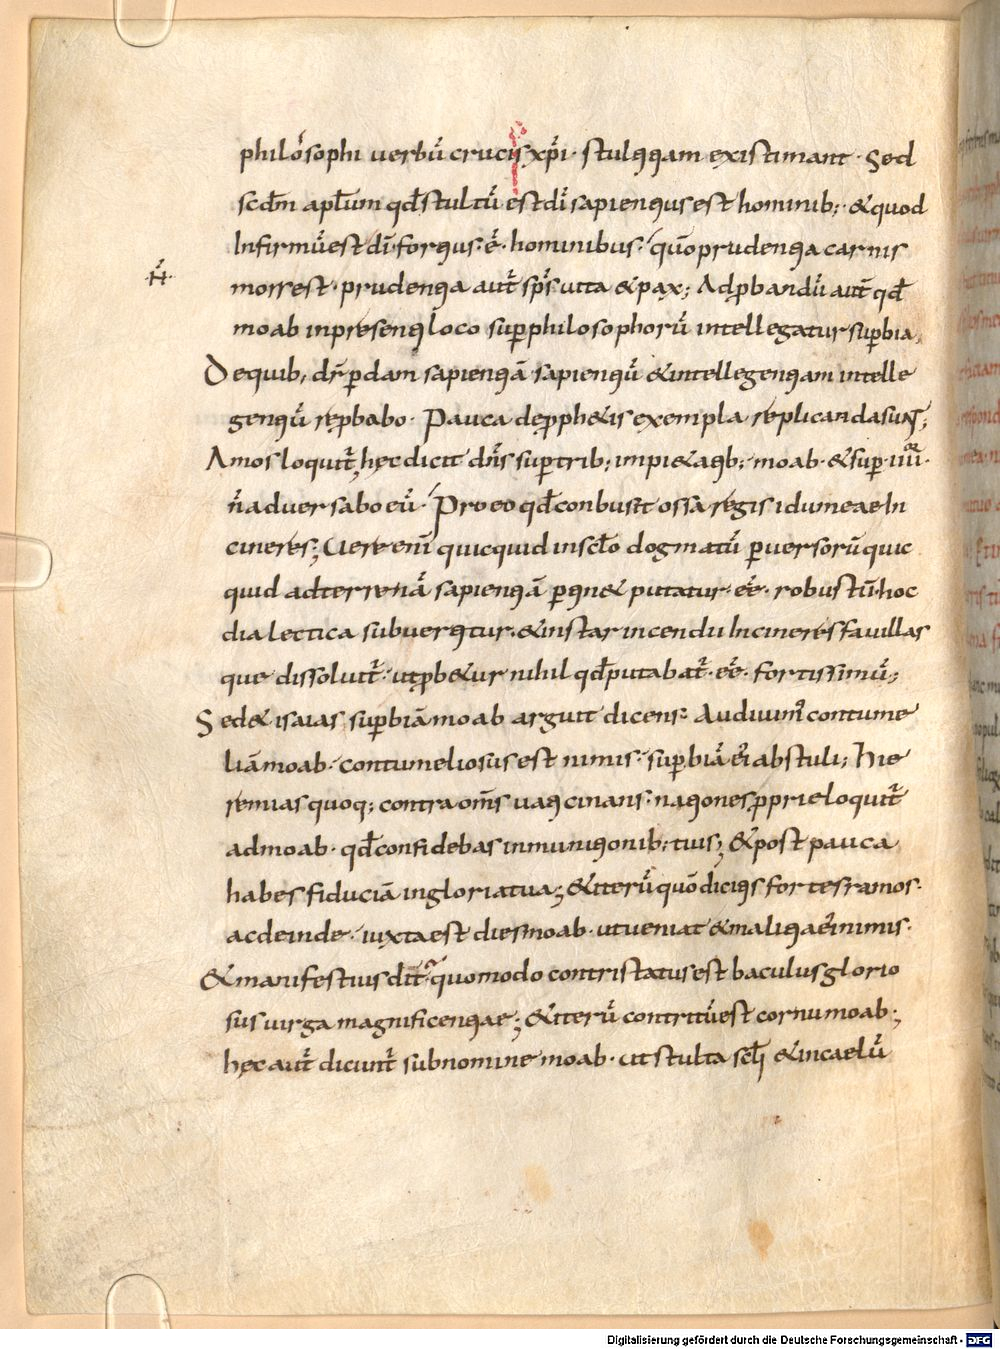 philosophi uerbū crucis xp̄i · stultitiam existimant · Sed
scđm apłum qđ stultū est dī sapientius est hominib; · & quod
Infirmū est dī · fortius · ē · hominibus · quō prudentia carnis
morsest · prudentia aut̄ sp̄s uita & pax ; Ad pbandū aut̄ qđ
N̄
moab inpresenti loco sup philosophorū intellegatur supbia,
De quib; dr̄ perdam sapientiā sapientiū & intellegentiam intelle
gentiū repbabo · Pauca de pph&is exempla replicanda sunt ;
Amos loquit̄ hęc dicit dn̄s sup trib; impi&atib; moab · & sup · IIIIor ·
n̄ aduersabo eū · Pro eo qđ conbusit ossa regis idumeae In
cineres ; Uere enī quicquid in scło dogmatū peruersorū quic
quid ad terrenā sapientiā ptin& putatur · eē · robustū · hoc
dialectica subuertitur · & instar incendii In cineres fauillas
que dissoluit̄ · ut pb&ur nihil qđ putabat̄ · eē · fortissimū ;
Sed & isaias supbiā moab arguit dicens · Audiuim' contume
liā moab · contumeliosus est nimis · supbiā ei' abstuli ; Hie
remias quoq; contra om̄s uaticinans · nationes pprie loquit̄
ad moab · qđ confidebas in munitionib; tuis ; & post pauca
habes fiduciā in gloria tua ; & iterū quō dicitis fortes ramos ·
ac deinde · iuxta est dies moab · ut ueniat & malitia ei' nimis ·
& manifestius dit̄ quomodo contristatus est baculus glorio
sus uirga magnificentiae ; & iterū contritū est cornu moab ;
hęc aut̄ dicunt̄ sub nomine moab · ut stulta scłi & in caelū
Digitalisierung gefördert durch die Deutsche Forschungsgemeinschaft - DFG